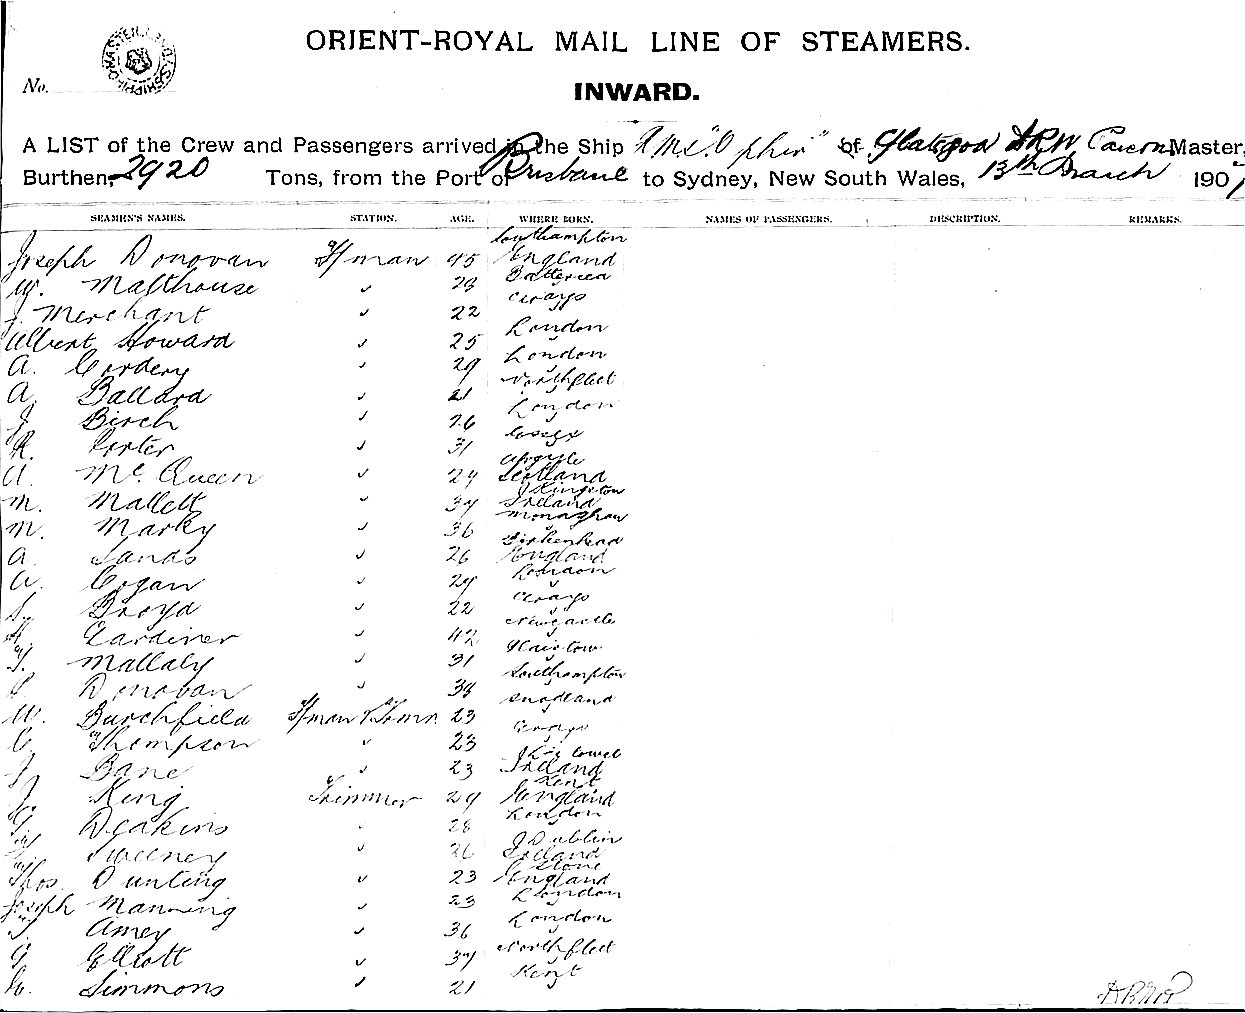 ORIENT-ROYAL MAIL LINE OF STEAMERS.
No.
INWARD.
A LIST of the Crew and Passengers arrived in the Ship "Ophir" of Master,
Burthen, 2920 Tons, from the Port of Brisbane to Sydney, New South Wales, 13th March 1907
SEAMEN'S NAMES. STATION. AGE. WHERE BORN. NAMES OF PASSENGERS. DESCRIPTION. REMARKS.
Southampton
Joseph Donovan F/man 45 England
Battersea
W. Malthouse ✓ 23
Grays
J. Merchant ✓ 22
London
Albert Howard ✓ 25
London
A. Cordery ✓ 29
Northfleet
A. Ballard ✓ 21
London
J. Birch ✓ 26
Essex
R. Porter ✓ 31
Argyle
A. McQueen ✓ 29 Scotland
Kingstow
M. Mallett ✓ 37 Ireland
Monaghan
M. Marky ✓ 36
Birkenhead
A. Sands ✓ 26 England
London
A. Cogan ✓ 29
Grays
S. Broyd ✓ 22
Newcastle
Gardiner ✓ 42
Plaistow
T. Mallaly ✓ 31
Southampton
Donovan ✓ 38
Snodland
W. Burchfield F/man & Trimr 23
Grays
C. Thompson ✓ 23
J. Bane ✓ 23 Ireland
Kent
J. King Trimmer 29 England
London
G. Deakins 28
Dublin
Sweeney ✓ 26 Ireland
Stone
Thos. Dunting ✓ 23 England
London
Joseph Manning ✓ 23
London
Amey ✓ 36
Northfleet
G. Elliott ✓ 37
Kent
Simmons ✓ 21